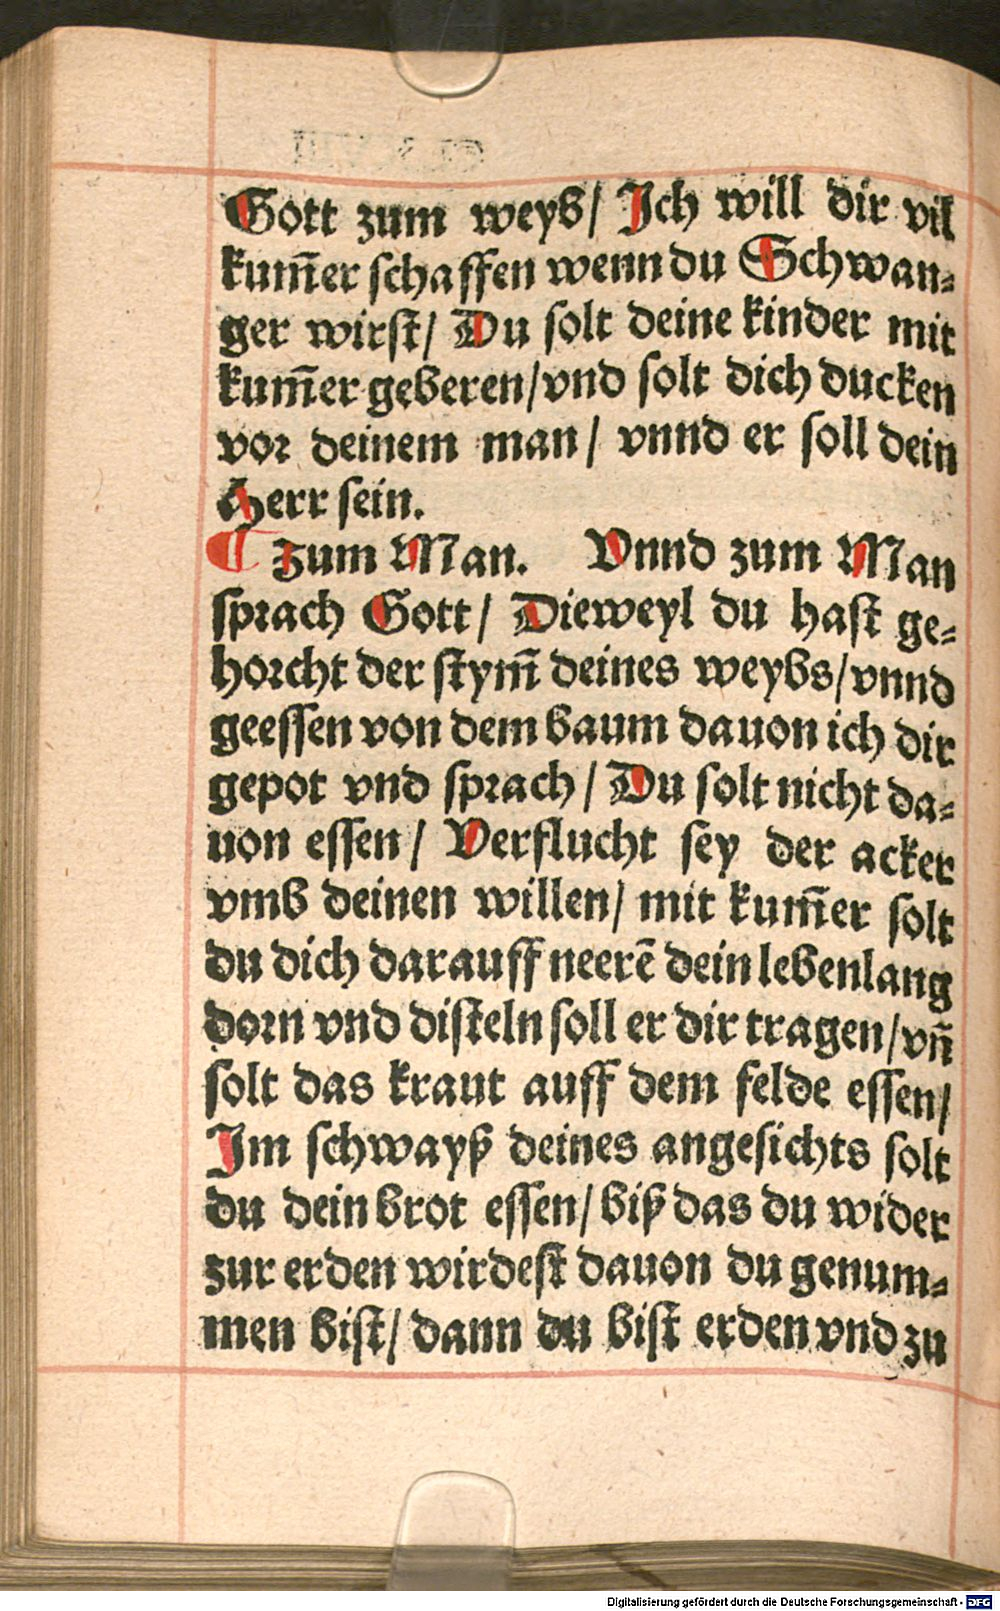 Gott zum weyb/ Ich will dir vil
kum̄er schaffen wenn du Schwan⸗
ger wirst/ Du solt deine kinder mit
kum̄er geberen/vnd solt dich ducken
vor deinem man/ vnnd er soll dein
Herr sein.
¶ Zum Man. Vnnd zum Man
sprach Gott/ Dieweyl du hast ge⸗
horcht der stym̄ deines weybs/vnnd
geessen von dem baum dauon ich dir
gepot vnd sprach/ Du solt nicht da⸗
uon essen/ Verflucht sey der acker
vmb deinen willen/ mit kum̄er solt
du dich darauff neerē dein lebenlang
dorn vnd disteln soll er dir tragen/vn̄
solt das kraut auff dem felde essen/
Im schwayß deines angesichts solt
du dein brot essen/ biß das du wider
zur erden wirdest dauon du genum⸗
men bist/ dann du bist erden vnd zu
Digitalisierung gefördert durch die Deutsche Forschungsgemeinschaft - DFG